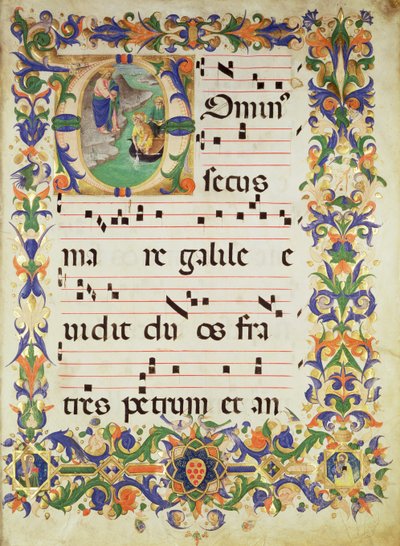 Domin⁹
secus
ma re galile e
uidit du os fra
tres petrum et an